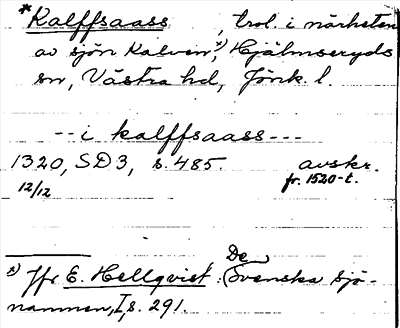 *Kalffsaass, trol. i närheten
av sjön Kalven,*) Hjälmseryds
sn, Västra hd, Jönk. l.
--i kalffsaass---
1320, SD 3, s. 485. avskr.
12/12 fr. 1520-t.
*) Jfr E. Hellqvist: De Svenska sjö-
namnen, I, s. 291.